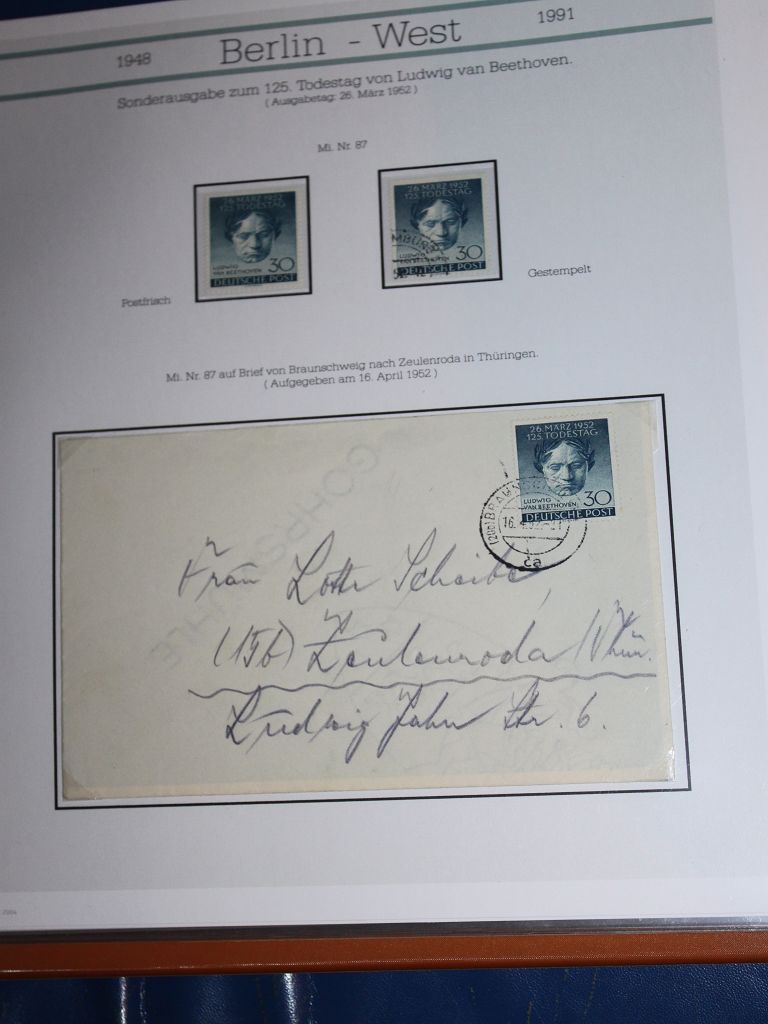 1948 Berlin - West 1991
Sonderausgabe zum 125. Todestag von Ludwig van Beethoven.
( Ausgabetag: 26. März 1952 )
Mi. Nr. 87
26. MÄRZ 1952
125. TODESTAG
LUDWIG
VAN BEETHOVEN
30
DEUTSCHE POST
Postfrisch
26. MÄRZ 1952
125. TODESTAG
MBURG
LUDWIG
30
DEUTSCHE POST
Gestempelt
Mi. Nr. 87 auf Brief von Braunschweig nach Zeulenroda in Thüringen.
( Aufgegeben am 16. April 1952 )
26. MÄRZ 1952
125. TODESTAG
LUDWIG
VAN BEETHOVEN
30
DEUTSCHE POST
(20b) BRAUNSCH
16. 4. 52
ca
Frau Lotte Scheibe
(15b) Zeulenroda / Thür.
Ludwig Jahn Str. 6.